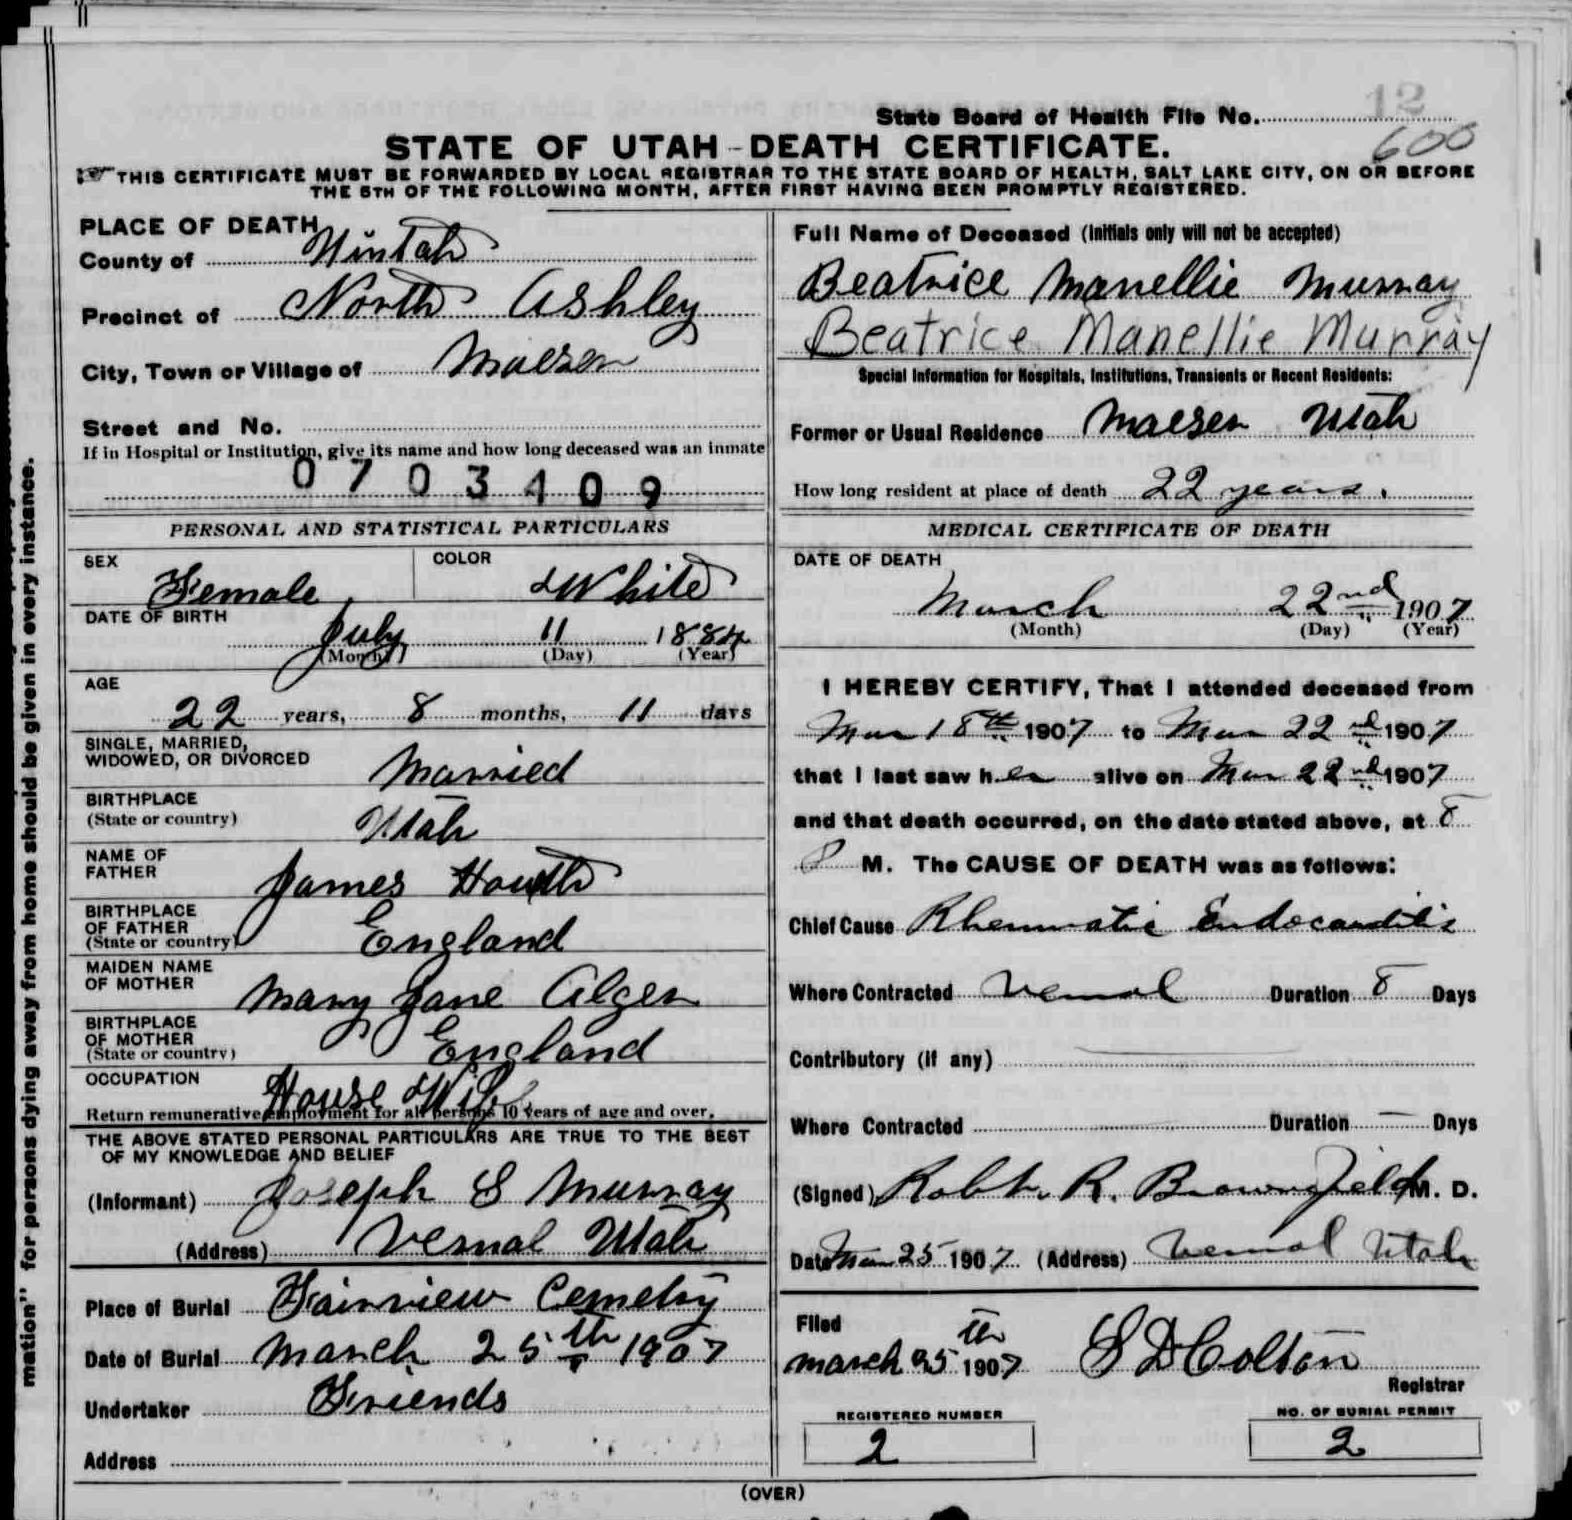 12
State Board of Health File No.
600
STATE OF UTAH - DEATH CERTIFICATE.
THIS CERTIFICATE MUST BE FORWARDED BY LOCAL REGISTRAR TO THE STATE BOARD OF HEALTH, SALT LAKE CITY, ON OR BEFORE
THE 5TH OF THE FOLLOWING MONTH, AFTER FIRST HAVING BEEN PROMPTLY REGISTERED.
mation" for persons dying away from home should be given in every instance.
PLACE OF DEATH
County of Uintah
Precinct of North Ashley
City, Town or Village of Maeser
Street and No.
If in Hospital or Institution, give its name and how long deceased was an inmate
0703409
PERSONAL AND STATISTICAL PARTICULARS
SEX Female COLOR White
DATE OF BIRTH
July 11 1884
(Month) (Day) (Year)
AGE
22 years, 8 months, 11 days
SINGLE, MARRIED,
WIDOWED, OR DIVORCED Married
BIRTHPLACE
(State or country) Utah
NAME OF
FATHER James
BIRTHPLACE
OF FATHER
(State or country) England
MAIDEN NAME
OF MOTHER Mary Jane Alger
BIRTHPLACE
OF MOTHER
(State or country) England
OCCUPATION House Wife
Return remunerative employment for all persons 10 years of age and over.
THE ABOVE STATED PERSONAL PARTICULARS ARE TRUE TO THE BEST
OF MY KNOWLEDGE AND BELIEF
(Informant) Joseph S Murray
(Address) Vernal Utah
Place of Burial Fairview Cemetry
Date of Burial March 25th 1907
Undertaker Friends
Address
Full Name of Deceased (Initials only will not be accepted)
Beatrice Manellie Murray
Beatrice Manellie Murray
Special Information for Hospitals, Institutions, Transients or Recent Residents:
Former or Usual Residence Maeser Utah
How long resident at place of death 22 years.
MEDICAL CERTIFICATE OF DEATH
DATE OF DEATH
March 22nd 1907
(Month) (Day) (Year)
I HEREBY CERTIFY, That I attended deceased from
Mar 18th 1907 to Mar 22nd 1907
that I last saw her alive on Mar 22nd 1907
and that death occurred, on the date stated above, at 8
M. The CAUSE OF DEATH was as follows:
Chief Cause Rheumatic Endocarditis
Where Contracted Vernal Duration 8 Days
Contributory (if any)
Where Contracted Duration — Days
(Signed) Robt. R. Brownfield M. D.
Date Mar 25 1907 (Address) Vernal Utah
Filed
March 25th 1907 S D Colton
Registrar
REGISTERED NUMBER
2
NO. OF BURIAL PERMIT
2
(OVER)